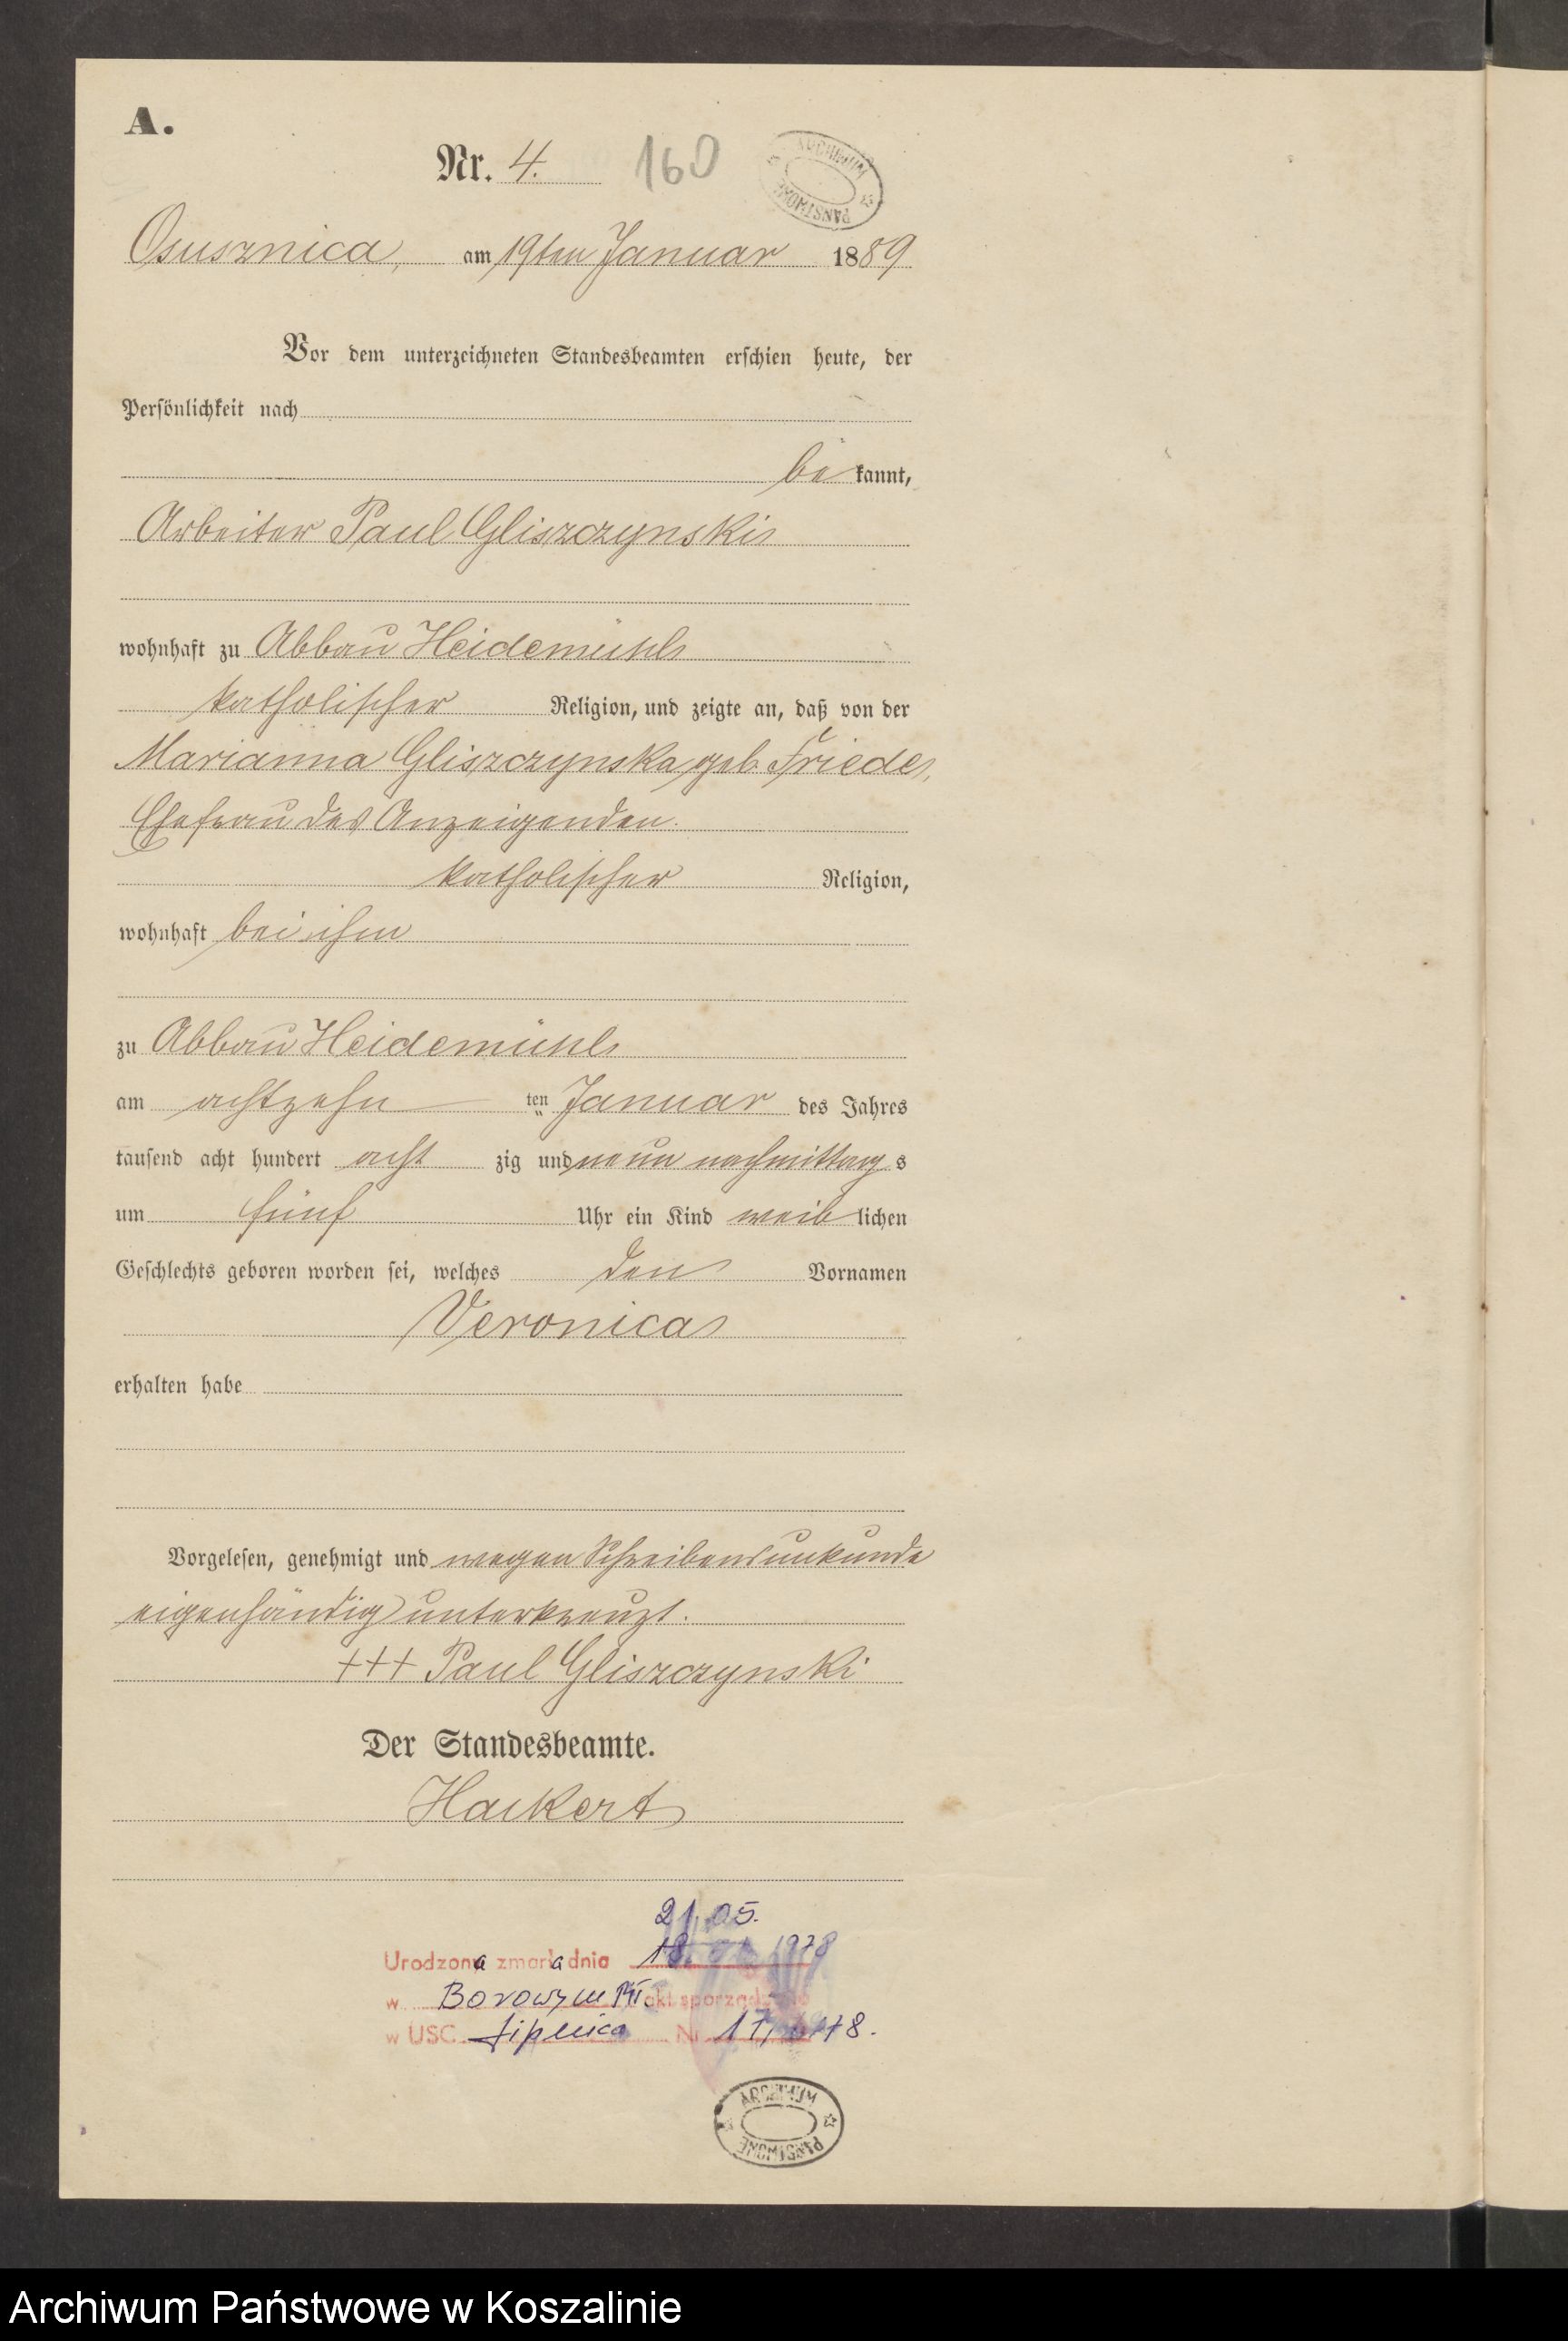 A.
Nr. 4. 160
ARCHIWUM PAŃSTWOWE
Osusznica, am 19ten Januar 1889
Vor dem unterzeichneten Standesbeamten erschien heute, der
Persönlichkeit nach
be kannt,
Arbeiter Paul Gliszczynski
wohnhaft zu Abbau Heidemühl
katholischer Religion, und zeigte an, daß von der
Marianna Gliszczynska geb. Friede,
Ehefrau des Anzeigenden.
katholischer Religion,
wohnhaft bei ihm
zu Abbau Heidemühl
am achtzehn ten Januar des Jahres
tausend acht hundert acht zig und neun nachmittag s
um fünf Uhr ein Kind weib lichen
Geschlechts geboren worden sei, welches den Vornamen
Veronica
erhalten habe
Vorgelesen, genehmigt und wegen Schreibensunkunde
eigenhändig unterkreuzt.
+++ Paul Gliszczynski
Der Standesbeamte.
Hackert
21.05.
Urodzona zmarła dnia 18. 1978
w Borowym akt sporządzono
w USC Lipnica Nr 17
ARCHIWUM PAŃSTWOWE
Archiwum Państwowe w Koszalinie